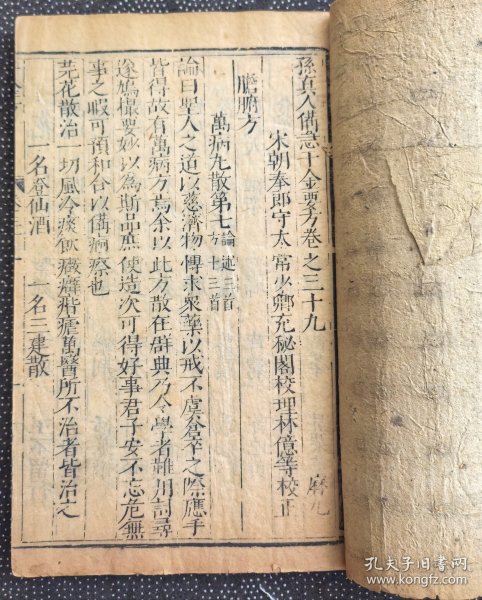 孫真人備急千金要方卷之三十九
宋朝奉郎守太常少卿充秘閣校理林億等校正
膽腑方
萬病丸散第七 論 三首 方十三首
論曰聖人之道以慈濟物博求衆藥以戒不虞倉卒之際應手
皆得故有萬病方焉余以此方散在群典乃令學者難用討尋
遂鳩撮要妙以為斯品庶使造次可得好事君子安不忘危無
事之暇可預和合以備痾瘵也
芫花散治一切風冷痰飲癥癖痎瘧萬醫所不治者皆治之
一名登仙酒 一名三建散
孔夫子旧书网
www.kongfz.com